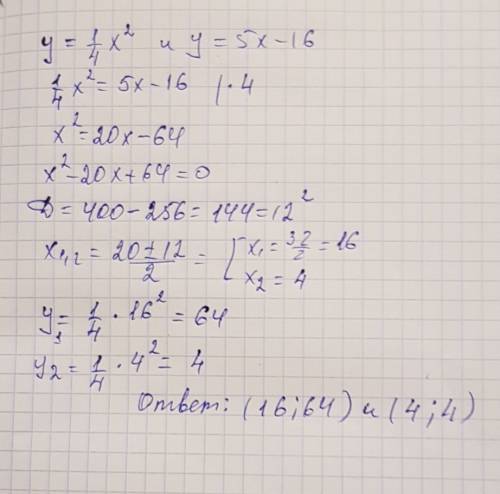 y = 1/4 x² и y = 5x - 16
1/4 x² = 5x - 16 | · 4
x² = 20x - 64
x² - 20x + 64 = 0
D = 400 - 256 = 144 = 12²
x₁,₂ = (20 ± 12)/2 = [ x₁ = 32/2 = 16
x₂ = 4
y₁ = 1/4 · 16² = 64
y₂ = 1/4 · 4² = 4
Ответ: (16; 64) и (4; 4)